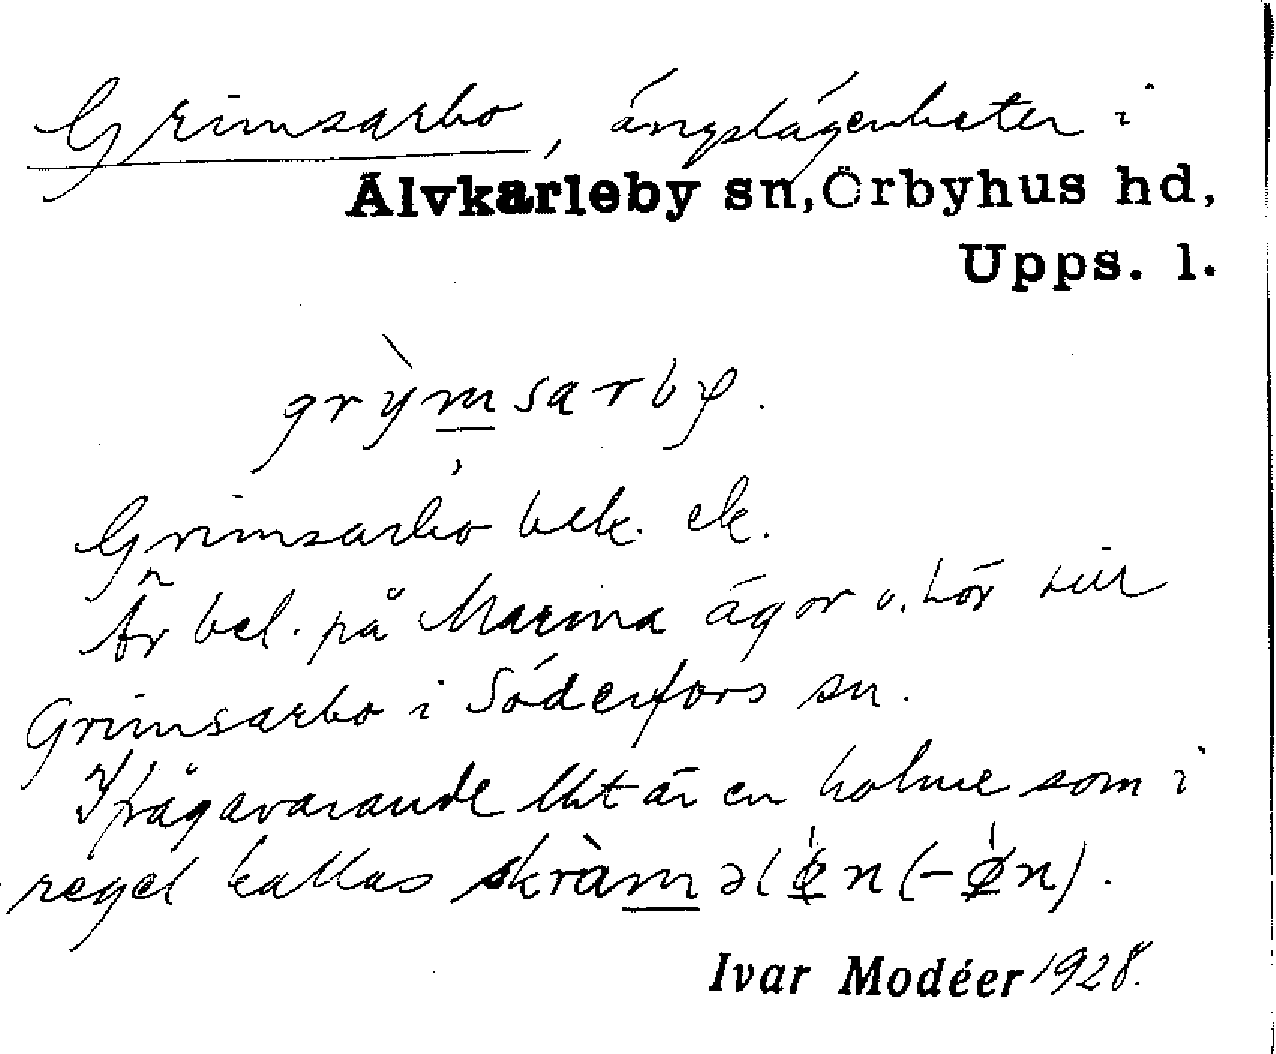 Grimsarbo, ängslägenheter i
Älvkarleby sn, Örbyhus hd,
Upps. l.
grỳmsarbφ.
Grimsarbo bek. ek.
Är bel. på Marma ägor o. hör till
Grimsarbo i Söderfors sn.
Ifrågavarande lht är en holme som i
regel kallas skràməl n (- n).
Ivar Modéer 1928.